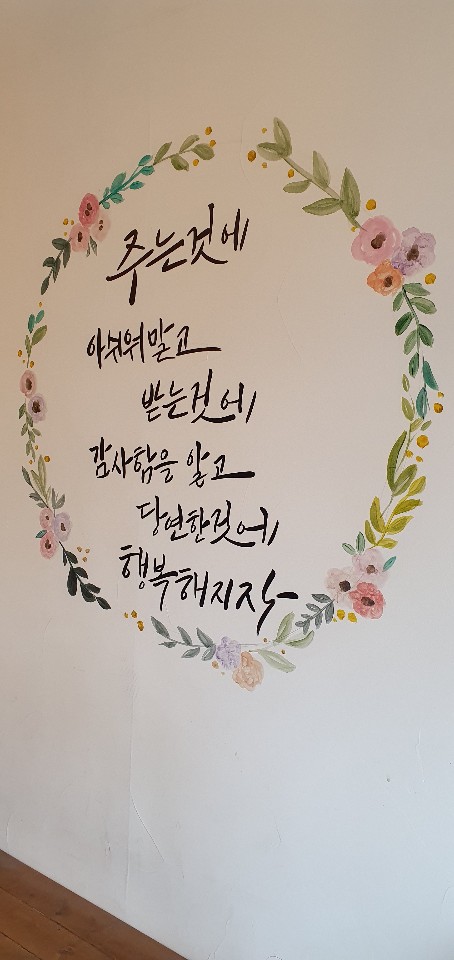 주는것에
아쉬워말고
받는것에
감사함을 알고
당연한것에
행복해지자